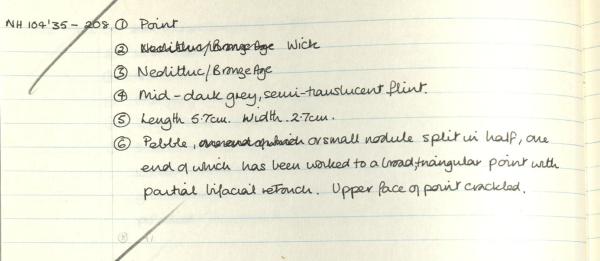 NH 104'35 - 208 ① Point
② Neolithic/Bronze Age Wick
③ Neolithic/Bronze Age
④ Mid-dark grey, semi-translucent flint.
⑤ Length 5.7cm. Width 2.7cm.
⑥ Pebble, one end of which or small nodule split in half, one
end of which has been worked to a broad, triangular point with
partial bifacial retouch. Upper face of point crackled.